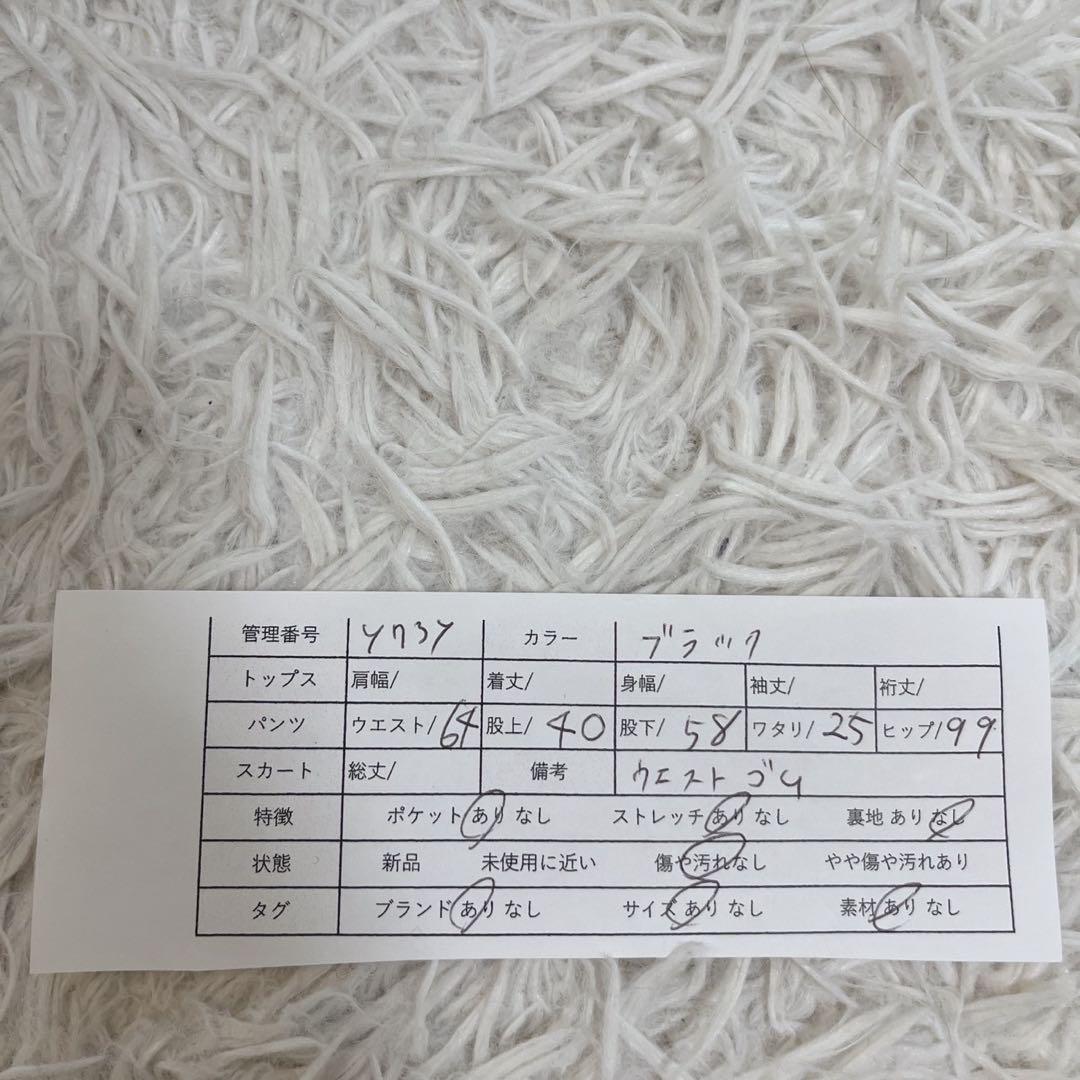 管理番号 Y773Y カラー ブラック
トップス 肩幅/ 着丈/ 身幅/ 袖丈/ 裄丈/
パンツ ウエスト/64 股上/40 股下/58 ワタリ/25 ヒップ/99
スカート 総丈/ 備考 ウエストゴム
特徴 ポケット あり なし ストレッチ あり なし 裏地 あり なし
状態 新品 未使用に近い 傷や汚れなし やや傷や汚れあり
タグ ブランド あり なし サイズ あり なし 素材 あり なし